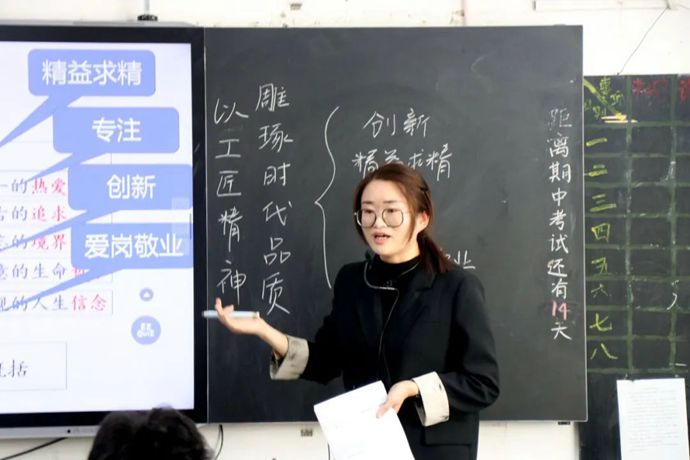 精益求精
专注
创新
爱岗敬业
的热爱
的追求
的境界
的生命
的人生信念
括
以工匠精神
雕琢时代品质
创新
精益求精
业
距离期中考试还有14天
一
二
三
四
五
六
七
八